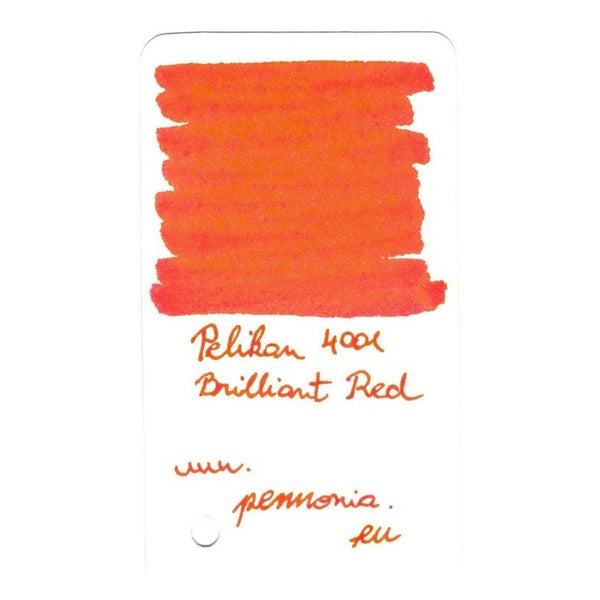 Pelikan 4001
Brilliant Red
www.
pennonia.
eu